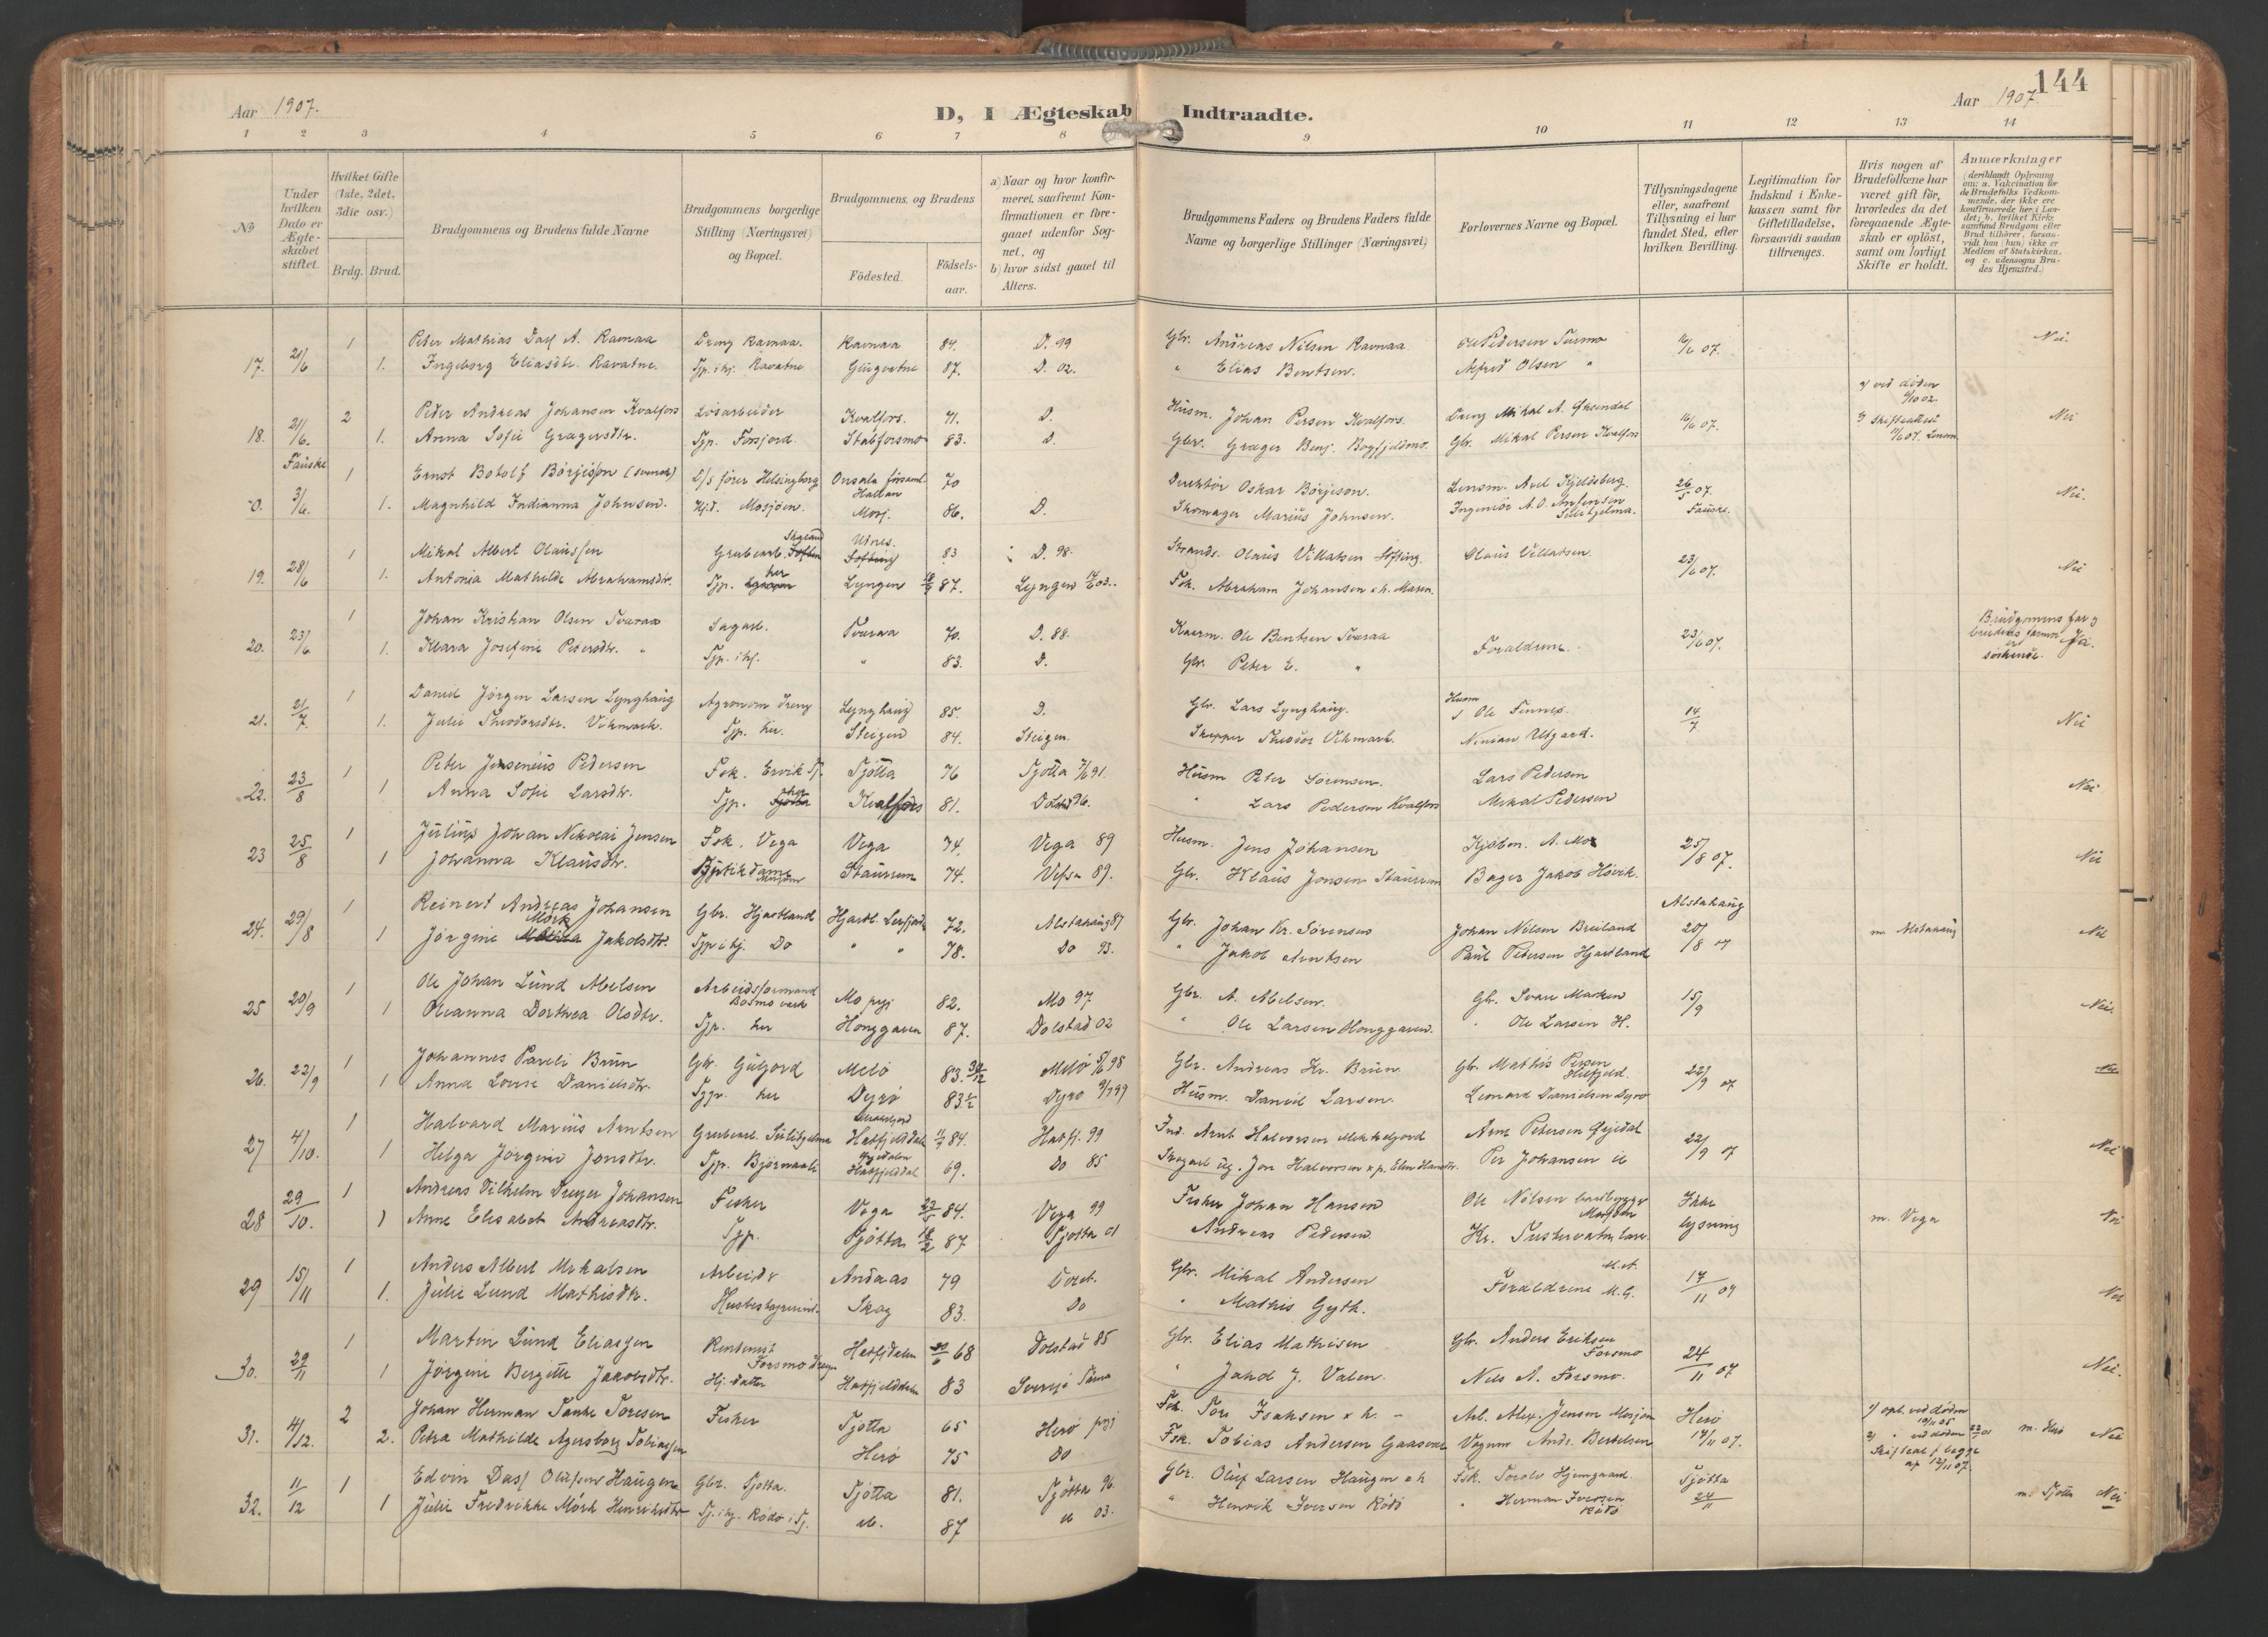 144
Aar 1907.
D, I Ægteskab Indtraadte.
Aar 1907
1 2 3 4 5 6 7 8 9 10 11 12 13 14
No
Under hvilken Dato er Ægteskabet stiftet.
Hvilket Gifte (1ste, 2det, 3die osv.)
Brdg. Brud.
Brudgommens og Brudens fulde Navne
Brudgommens borgerlige Stilling (Næringsvei) og Bopæl.
Brudgommens og Brudens
Födested.
Födselsaar.
a) Naar og hvor konfirmeret, saafremt Konfirmationen er foregaaet udenfor Sognet, og
b) hvor sidst gaaet til Alters.
Brudgommens Faders og Brudens Faders fulde Navne og borgerlige Stillinger (Næringsvei)
Forlovernes Navne og Bopæl.
Tillysningsdagene eller, saafremt Tillysning ei har fundet Sted, efter hvilken Bevilling.
Legitimation for Indskud i Enkekassen samt for Giftetilladelse, forsaavidt saadan tiltrænges.
Hvis nogen af Brudefolkene har været gift för, hvorledes da det foregaaende Ægteskab er oplöst, samt om lovligt Skifte er holdt.
Anmærkninger (deriblandt Oplysning om: a. Vakcination for de Brudefolks Vedkommende, der ikke ere konfirmerede her i Landet; b. hvilket Kirkesamfund Brudgom eller Brud tilhörer, forsaavidt han (hun) ikke er Medlem af Statskirken, og c. udensogns Brudes Hjemsted.)
17. 21/6 1 Peter Mathias Dass A. Ravnaa Dreng Ravnaa. Ravnaa 84. D. 99 Gbr. Andreas Nilsen Ravnaa Ole Pedersen Tusmo 16/6 07. Nei.
1. Ingeborg Eliasdtr. Ravatne. Tjp. i hj. Ravatne 87. D. 02. " Elias Bentsen. Alfred Olsen "
18. 21/6. 2 Peder Andreas Johansen Kvalfors Løsarbeider Kvalfors. 71. D. Husm. Johan Persen Kvalfors. Dreng Mikal A. 16/6 07. 2) ved døden 02. Nei
1. Anna Sofie Grægersdtr. Tjp. Forsjord. Stabforsmo 83. D. Gbr. Græger Benj. Gbr. Mikal Persen Kvalfors 2) Skifteattest 07. Lensm.
0. Fauske 3/6. 1 Ernst Botolf Börjeson (svensk) D/S fører Helsingborg Onsala församl. Halland 70 Direktör Oskar Börjeson. Lensm. Axel Kjeldsberg. 26/5 07. Fauske. Nei.
1. Magnhild Indianna Johnsen. Hj.d. Mosjøen. Mosj. 86. D. Skomager Marius Johnsen. Ingeniør A. O. Sulitjelma.
19. 28/6 1 Mikal Albert Olaussen Grubearb. Utnes. 83 D. 98. Strands. Olaus Villatsen Olaus Villatsen. 23/6 07. Nei
1. Antonia Mathilde Abrahamsdtr. Tjp. her Lyngen 87. Lyngen 03. Fsk. Abraham Johansen & h. Maren.
20. 23/6 1 Johan Kristian Olsen Tveraa Sagarb. Tveraa 70. D. 88. Kaarm. Ole Bentsen Tveraa Foraldrene. 23/6 07. Brudgomens far og brudens farmor er søskende. Ja.
1. Klara Josefine Pedersdtr. " Tjp. i hj. " 83. D. Gbr. Peter E. "
21. 21/7 1 Daniel Jørgen Larsen Lynghaug Agronom Dreng Lynghaug 85. D. Gbr. Lars Lynghaug. Husm Ole Finnes. 14/7 Nei
1. Julie Theodorsdtr. Vikmark. Tjp. her. Steigen 84. Steigen. Skipper Theodor Vikmark. Ninian Utgard.
22. 23/8 1 Peter Jensenius Pedersen Fsk. Ervik Tj. Tjøtta 76 Tjøtta 91. Husm Peter Sørensen. Lars Pedersen Nei
1 Anna Sofie Larsdtr. Tjp. her Kvalfors 81. Dolstad 96. " Lars Pedersen Kvalfors Mikal Pedersen
23 25/8 1 Julius Johan Nikolai Jensen Fsk. Vega Vega 74. Vega 89 Husm. Jens Johansen Kjøbm. A. Moe 25/8 07. Nei
1 Johanna Klausdtr. Butikdame Mosjøen Staurem 74. Vefsn 89. Gbr. Klaus Jonsen Staurem Bager Jakob Høvik.
24. 29/8 1 Reinert Andreas Johansen Gbr. Hjartland Hjartl. Leirfjord 72. Alstahaug 87 Gbr. Johan Kr. Sørensen Johan Nilsen Breiland Alstahaug 20/8 07 m. Alstahaug Nei
1 Jørgine Mørk Jakobsdtr. Tjp i hj. Do " " 78. Do 93. " Jakob Arntsen Paul Pedersen Hjartland
25 20/9 1 Ole Johan Lund Abelsen Arbeidsformand Bosmo værk Mo pgj 82. Mo 97 Gbr. A. Abelsen. Gbr. Ivar Marken 15/9 Nei.
1 Oleanna Dorthea Olsdtr. Tjp. her Honggaren 87. Dolstad 02 " Ole Larsen Honggaren. " Ole Larsen H.
26. 22/9 1 Johannes Pareli Brun Gbr. Gulfjord Melö 83. Melö 98 Gbr. Andreas Kr. Brun Gbr. Mathis Persen 22/9 07
1 Anna Lovise Danielsdtr. Tjp. her Dyrö 83 Dyrø 99 Husm. Daniel Larsen. Leonard Danielsen Dyrø
27 4/10. 1 Halvard Marius Arntsen Grubearb. Sulitjelma Hatfjelddal 84. Hatfj. 99 Ind. Arnt Halvorsen Arne Petersen 22/9 07 Nei
1 Helga Jørgine Jonsdtr. Tjp. Bjørnaali Hatfjelddal 69. Do 85 Jon Halvorsen Per Johansen ib
28 29/10. 1 Andreas Vilhelm Dreyer Johansen Fisker Vega 84. Vega 99 Fisker Johan Hansen Ole Nilsen baadbygger Mosjøen Ikke lysning m. Vega Nei
1 Anne Elisabet Andreasdtr. Tjp. Tjøtta 87 Tjøtta 01 Andreas Pedersen Kr. Tustervatn
29 15/11 1 Anders Albert Mikalsen Arbeider Andaas 79 Doret. Gbr. Mikal Andersen Foraldrene M.A. M.G. 17/11 07 Nei
1. Julie Lund Mathisdtr. Husbestyrerinde Skog 83. Do " Mathis Gyth.
30. 29/11 1 Martin Lund Eliassen Rentenist Hatfjdalen 68 Dolstad 85 Gbr. Elias Mathisen Gbr. Anders Eriksen Forsmo 24/11 07 Nei.
1 Jørgine Bergitte Jakobsdtr. Hj. datter Hatfjelddalen 83 Sverige Tärna " Jakob J. Valen. Nels A. Forsmo.
31. 4/12. 2 Johan Herman Tanke Toresen Fisker Tjøtta 65 Herø pgj Fsk. Tore Isaksen & h. Arb. Alex. Jensen Mosjøen Herö 17/11 07. 1) opl. ved døden 05 m. Herø Nei
2. Petra Mathilde Agersborg Tobiassen Herø 75 Do Fsk. Tobias Andersen Vognm Andr. Bertelsen 2) " ved døden Skifteat f begge af 12/11 07.
32. 11/12 1 Edvin Dass Olufsen Haugen Gbr. Tjøtta. Tjøtta 81. Tjøtta 96. Gbr. Oluf Larsen Haugen & h Fsk. Torolv Hjemgaard Tjøtta 24/11 m. Tjøtta Nei
1 Julie Fredrikke Mørk Henriksdtr Tj. i hj. Rødø i Tj. ib. 87 ib 03. " Henrik Iversen Rödö " Herman Iversen Rödö